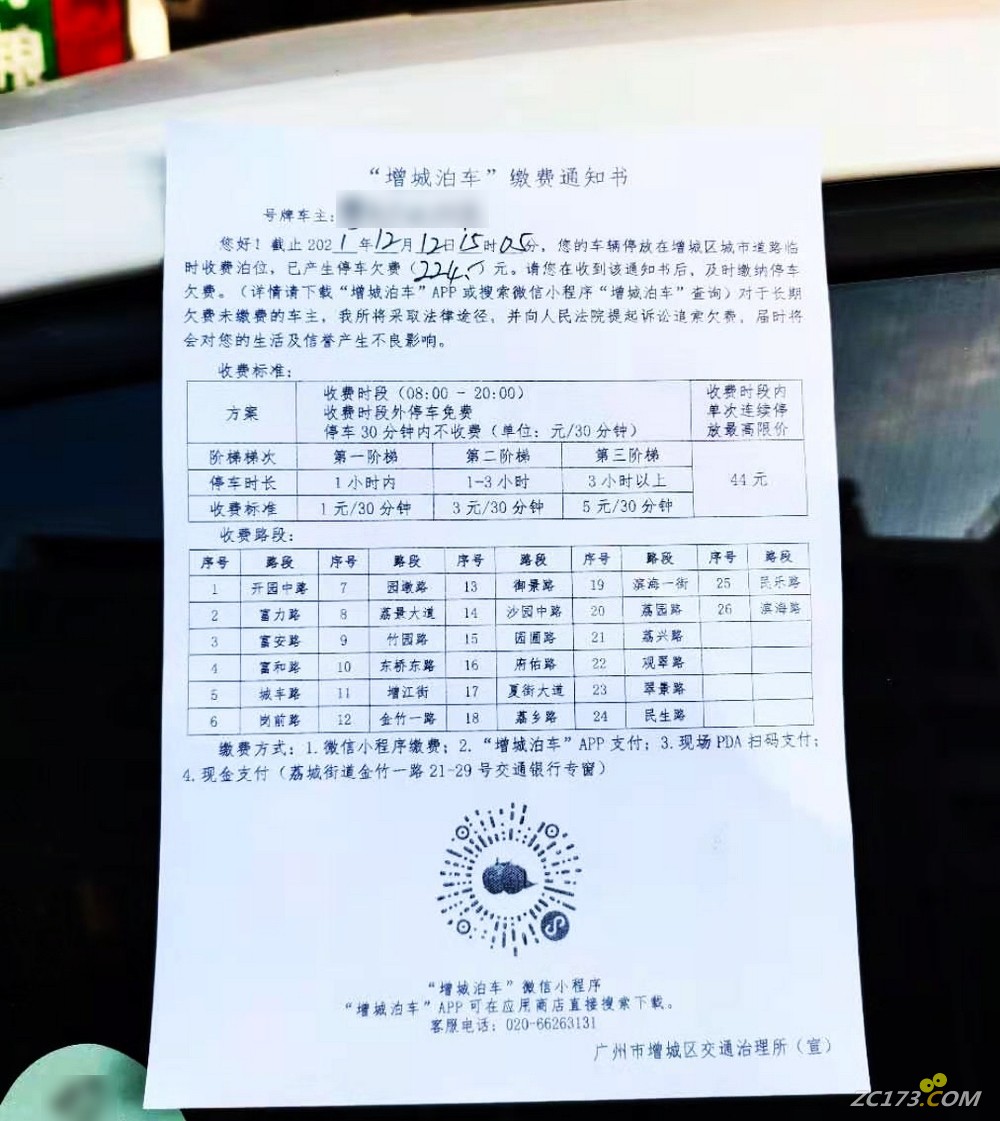 粮
“增城泊车”缴费通知书
号牌车主:
您好!截止2021年12月12日15时05分,您的车辆停放在增城区城市道路临
时收费泊位,已产生停车欠费(224.)元。请您在收到该通知书后,及时缴纳停车
欠费。(详情请下载“增城泊车”APP或搜索微信小程序“增城泊车”查询)对于长期
欠费未缴费的车主,我所将采取法律途径,并向人民法院提起诉讼追索欠费,届时将
会对您的生活及信誉产生不良影响。
收费标准:
方案 收费时段(08:00 - 20:00) 收费时段外停车免费 停车30分钟内不收费(单位:元/30分钟) 收费时段内单次连续停放最高限价
阶梯梯次 第一阶梯 第二阶梯 第三阶梯 44元
停车时长 1小时内 1-3小时 3小时以上
收费标准 1元/30分钟 3元/30分钟 5元/30分钟
收费路段:
序号 路段 序号 路段 序号 路段 序号 路段 序号 路段
1 开园中路 7 园墩路 13 御景路 19 滨海一街 25 民乐路
2 富力路 8 荔景大道 14 沙园中路 20 荔园路 26 滨海路
3 富安路 9 竹园路 15 园圃路 21 荔兴路
4 富和路 10 东桥东路 16 府佑路 22 观翠路
5 城丰路 11 增江街 17 夏街大道 23 翠景路
6 岗前路 12 金竹一路 18 荔乡路 24 民生路
缴费方式:1.微信小程序缴费;2.“增城泊车”APP支付;3.现场PDA扫码支付;
4.现金支付(荔城街道金竹一路21-29号交通银行专窗)
“增城泊车”微信小程序
“增城泊车”APP可在应用商店直接搜索下载。
客服电话:020-66263131
广州市增城区交通治理所(宣)
ZC173.COM